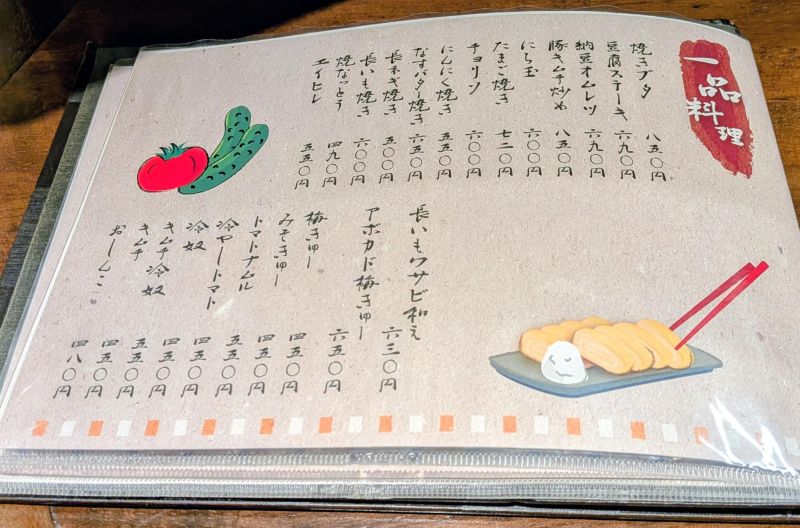 一品料理
焼きブタ 八五〇円
豆腐ステーキ 六九〇円
納豆オムレツ 六九〇円
豚キムチ炒め 八五〇円
にら玉 六〇〇円
たまご焼き 七二〇円
チョリソ 六〇〇円
にんにく焼き 五五〇円
なすバター焼き 六五〇円
長ネギ焼き 五五〇円
長いも焼き 六〇〇円
焼なっとう 四九〇円
エイヒレ 五五〇円
長いもワサビ和え 六三〇円
アボカド梅きゅー 六五〇円
梅きゅー 四五〇円
みそきゅー 四五〇円
トマトナムル 五五〇円
冷やしトマト 四五〇円
冷奴 四五〇円
キムチ冷奴 五五〇円
キムチ 四五〇円
おしんこ 四八〇円